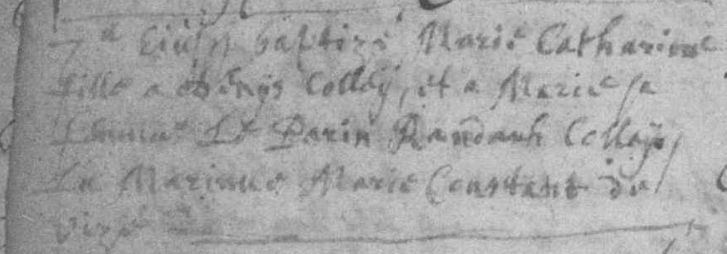 7a Eiusd baptizé Marie Catharine
fille a denys Collay, et a Marie sa
femme Le Parin Randauh Collay
La Marinne Marie Constant de
vize